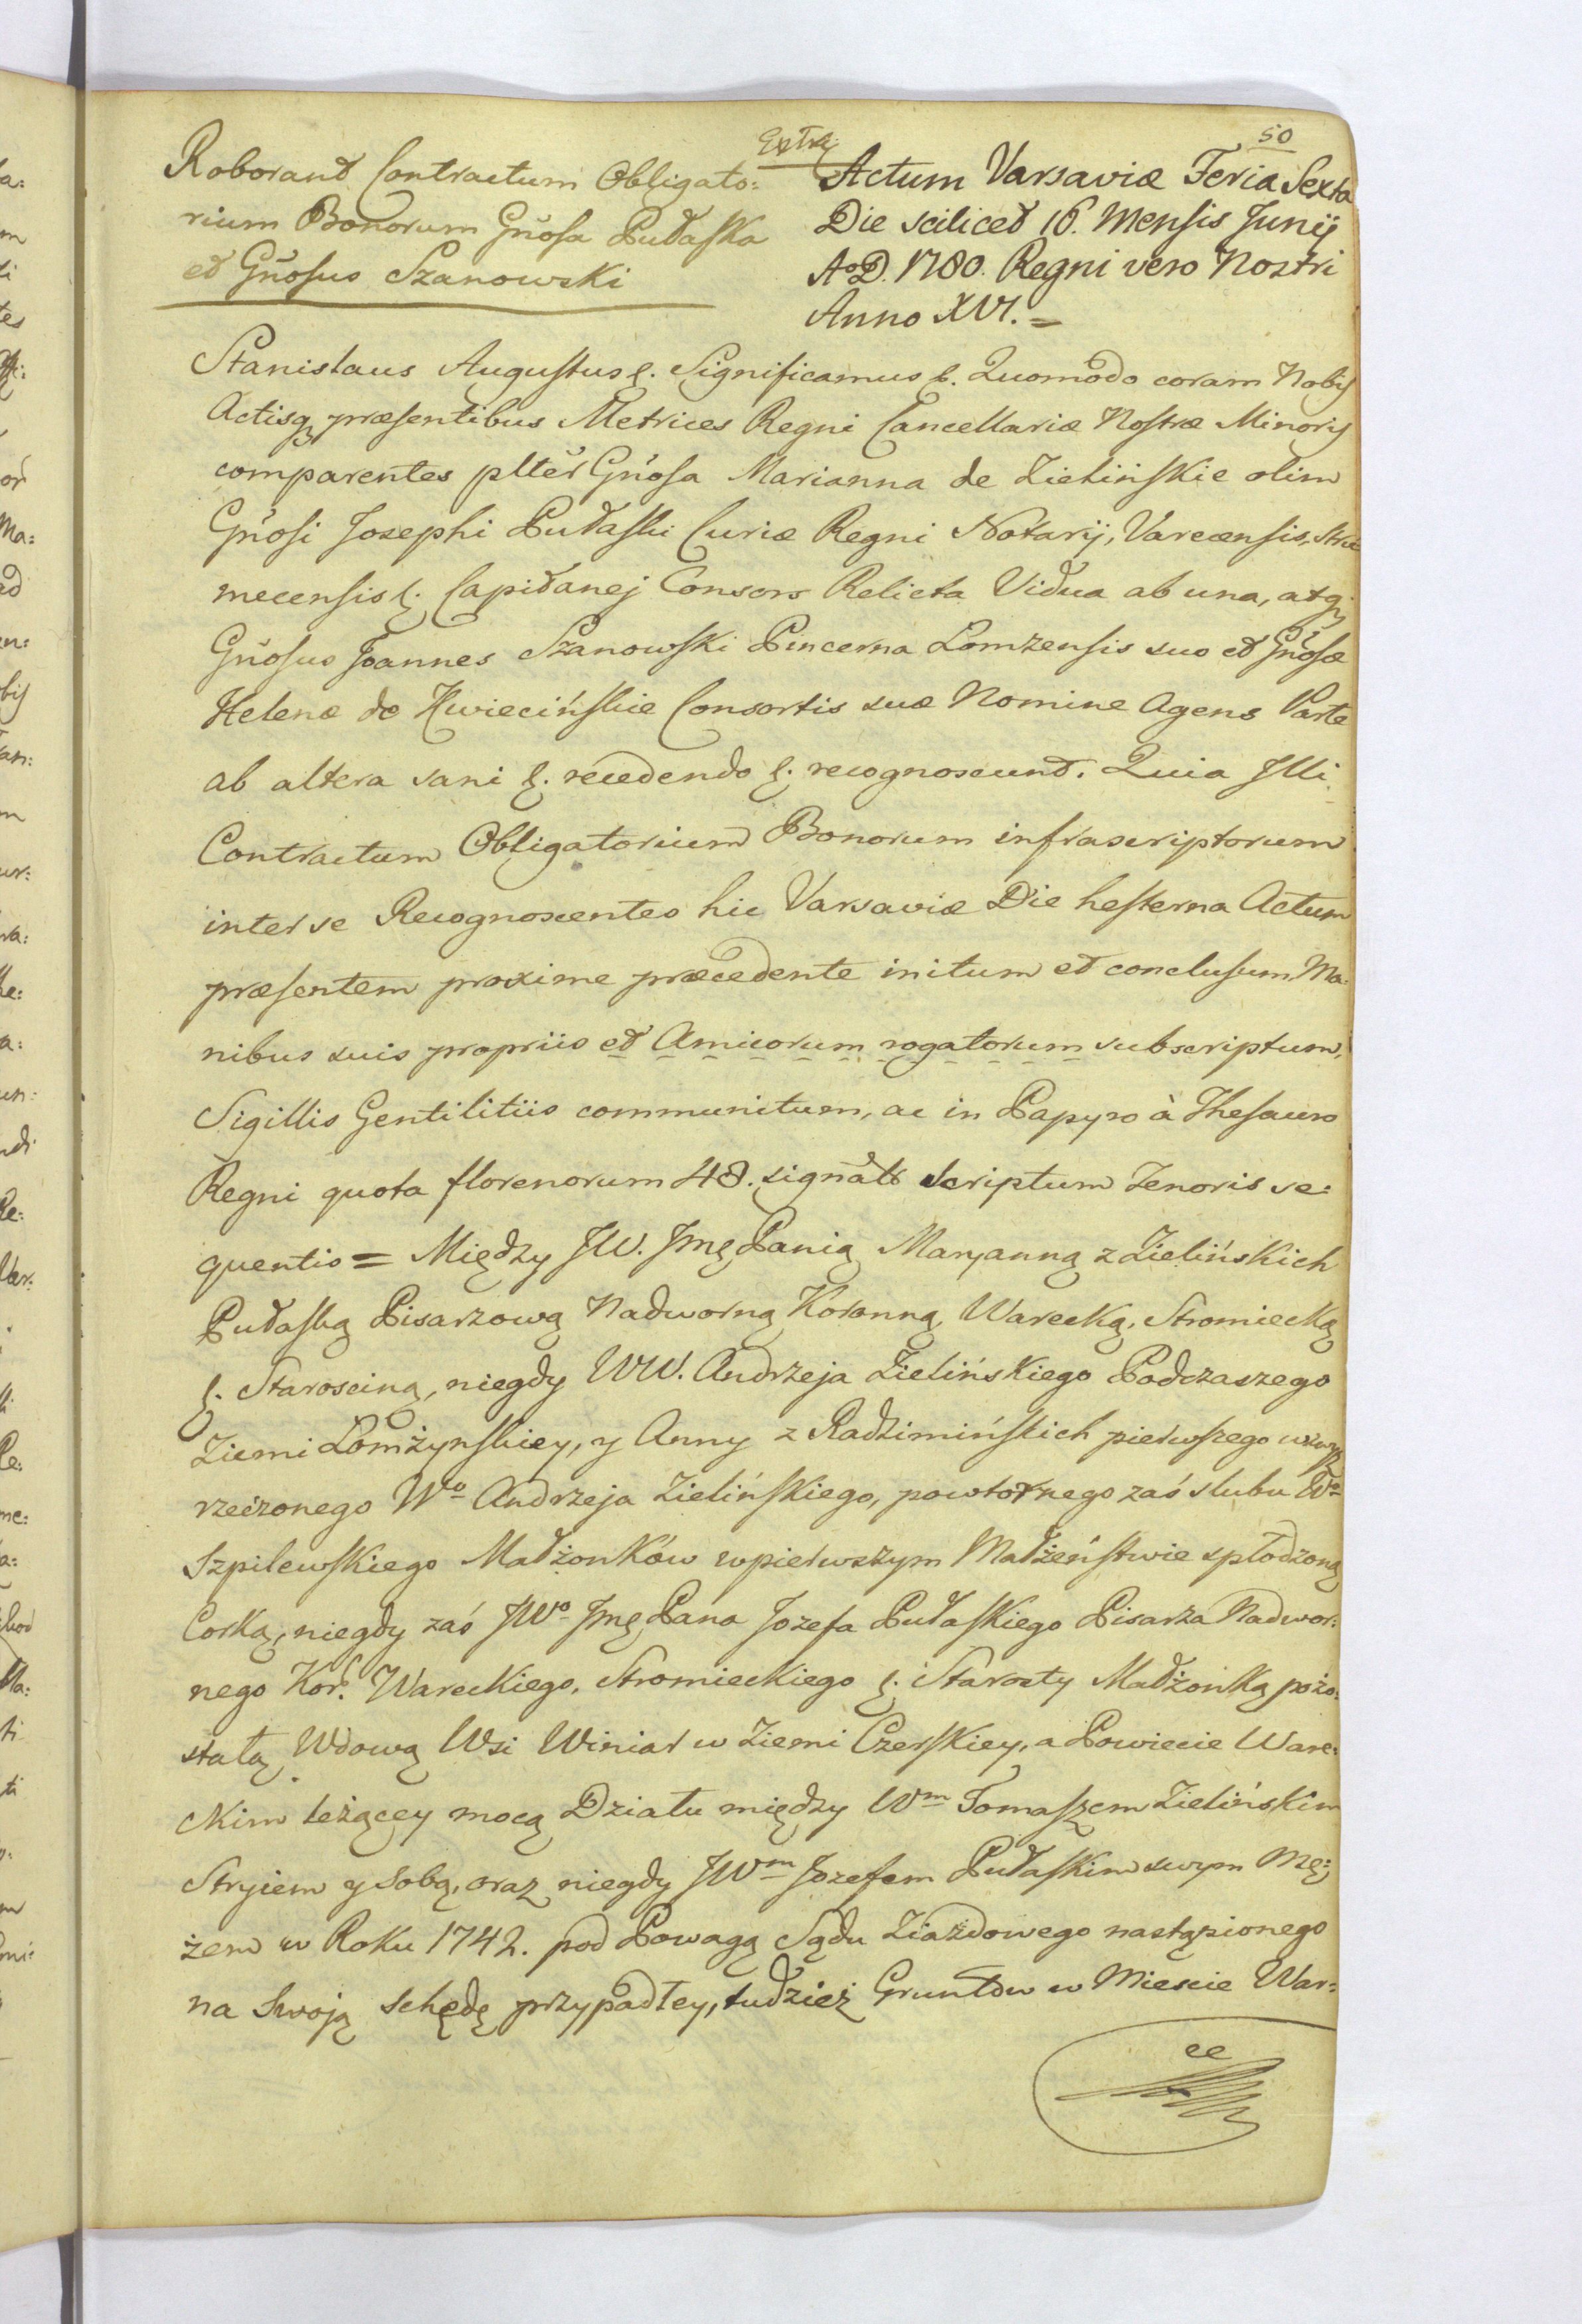 50
Extra:
Roborant Contractum Obligato:
rium Bonorum Gñosa Pułaska
et Gñosus Szanowski
Actum Varsaviæ Feria Sexta
Die scilicet 16. Mensis Junij
AoD. 1780. Regni vero Nostri
Anno XVI. =
Stanislaus Augustus &. Significamus &. Quomodo coram Nobis
Actisq; præsentibus Metrices Regni Cancellariæ Nostræ Minoris
comparentes pltër Gñosa Marianna de Zielińskie olim
Gñosi Josephi Pułaski Curiæ Regni Notarij, Varecensis, Stro
mecensis &. Capitanej Consors Relicta Vidua ab una, atq;
Gñosus Joannes Szanowski Pincerna Lomzensis suo et Gñosæ
Helenæ de Kwiecińskie Consortis suæ Nomine Agens Parte
ab altera sani &. recedendo &. recognoscunt. Quia Illi
Contractum Obligatorium Bonorum infrascriptorum
inter se Recognoscentes hic Varsaviæ Die hesterna Actum
præsentem proxime præcedente initum et conclusum, Ma:
nibus suis propriis et Amicorum rogatorum subscriptum,
Sigillis Gentilitiis communitum, ac in Papyro à Thesauro
Regni quota florenorum 48. signato scriptum Tenoris se:
quentis = Między JW. Jmę Panią Maryanną z Zielińskich
Pułaską Pisarzową Nadworną Koronną, Warecką, Stromiecką
&. Starosciną, niegdy WW. Andrzeja Zielińskiego Podczaszego
Ziemi Łomżynskiey, y Anny z Radzimińskich pierwszego wzwyż
rzeczonego Wo Andrzeja Zielińskiego, powtornego zaś slubu Wo
Szpilewskiego Małżonków wpierwszym Małżeństwie spłodzoną
Corką, niegdy zaś JWo Jmę Pana Jozefa Pułaskiego Pisarza Nadwor:
nego Kor. Wareckiego, Stromieckiego &. Starosty Małżonką pozo:
stałą Wdową Wsi Winiar w Ziemi Czerskiey, a Powiecie Ware:
ckim leżącey mocą Działu między Wm Tomaszem Zielińskim
Stryiem y sobą, oraz niegdy JWm Jozefem Pułaskim swym Mę:
żem w Roku 1742. pod Powagą Sądu Ziazdowego nastąpionego
na Swoją schędę przypadłey, tudzież Gruntów w Miescie War: